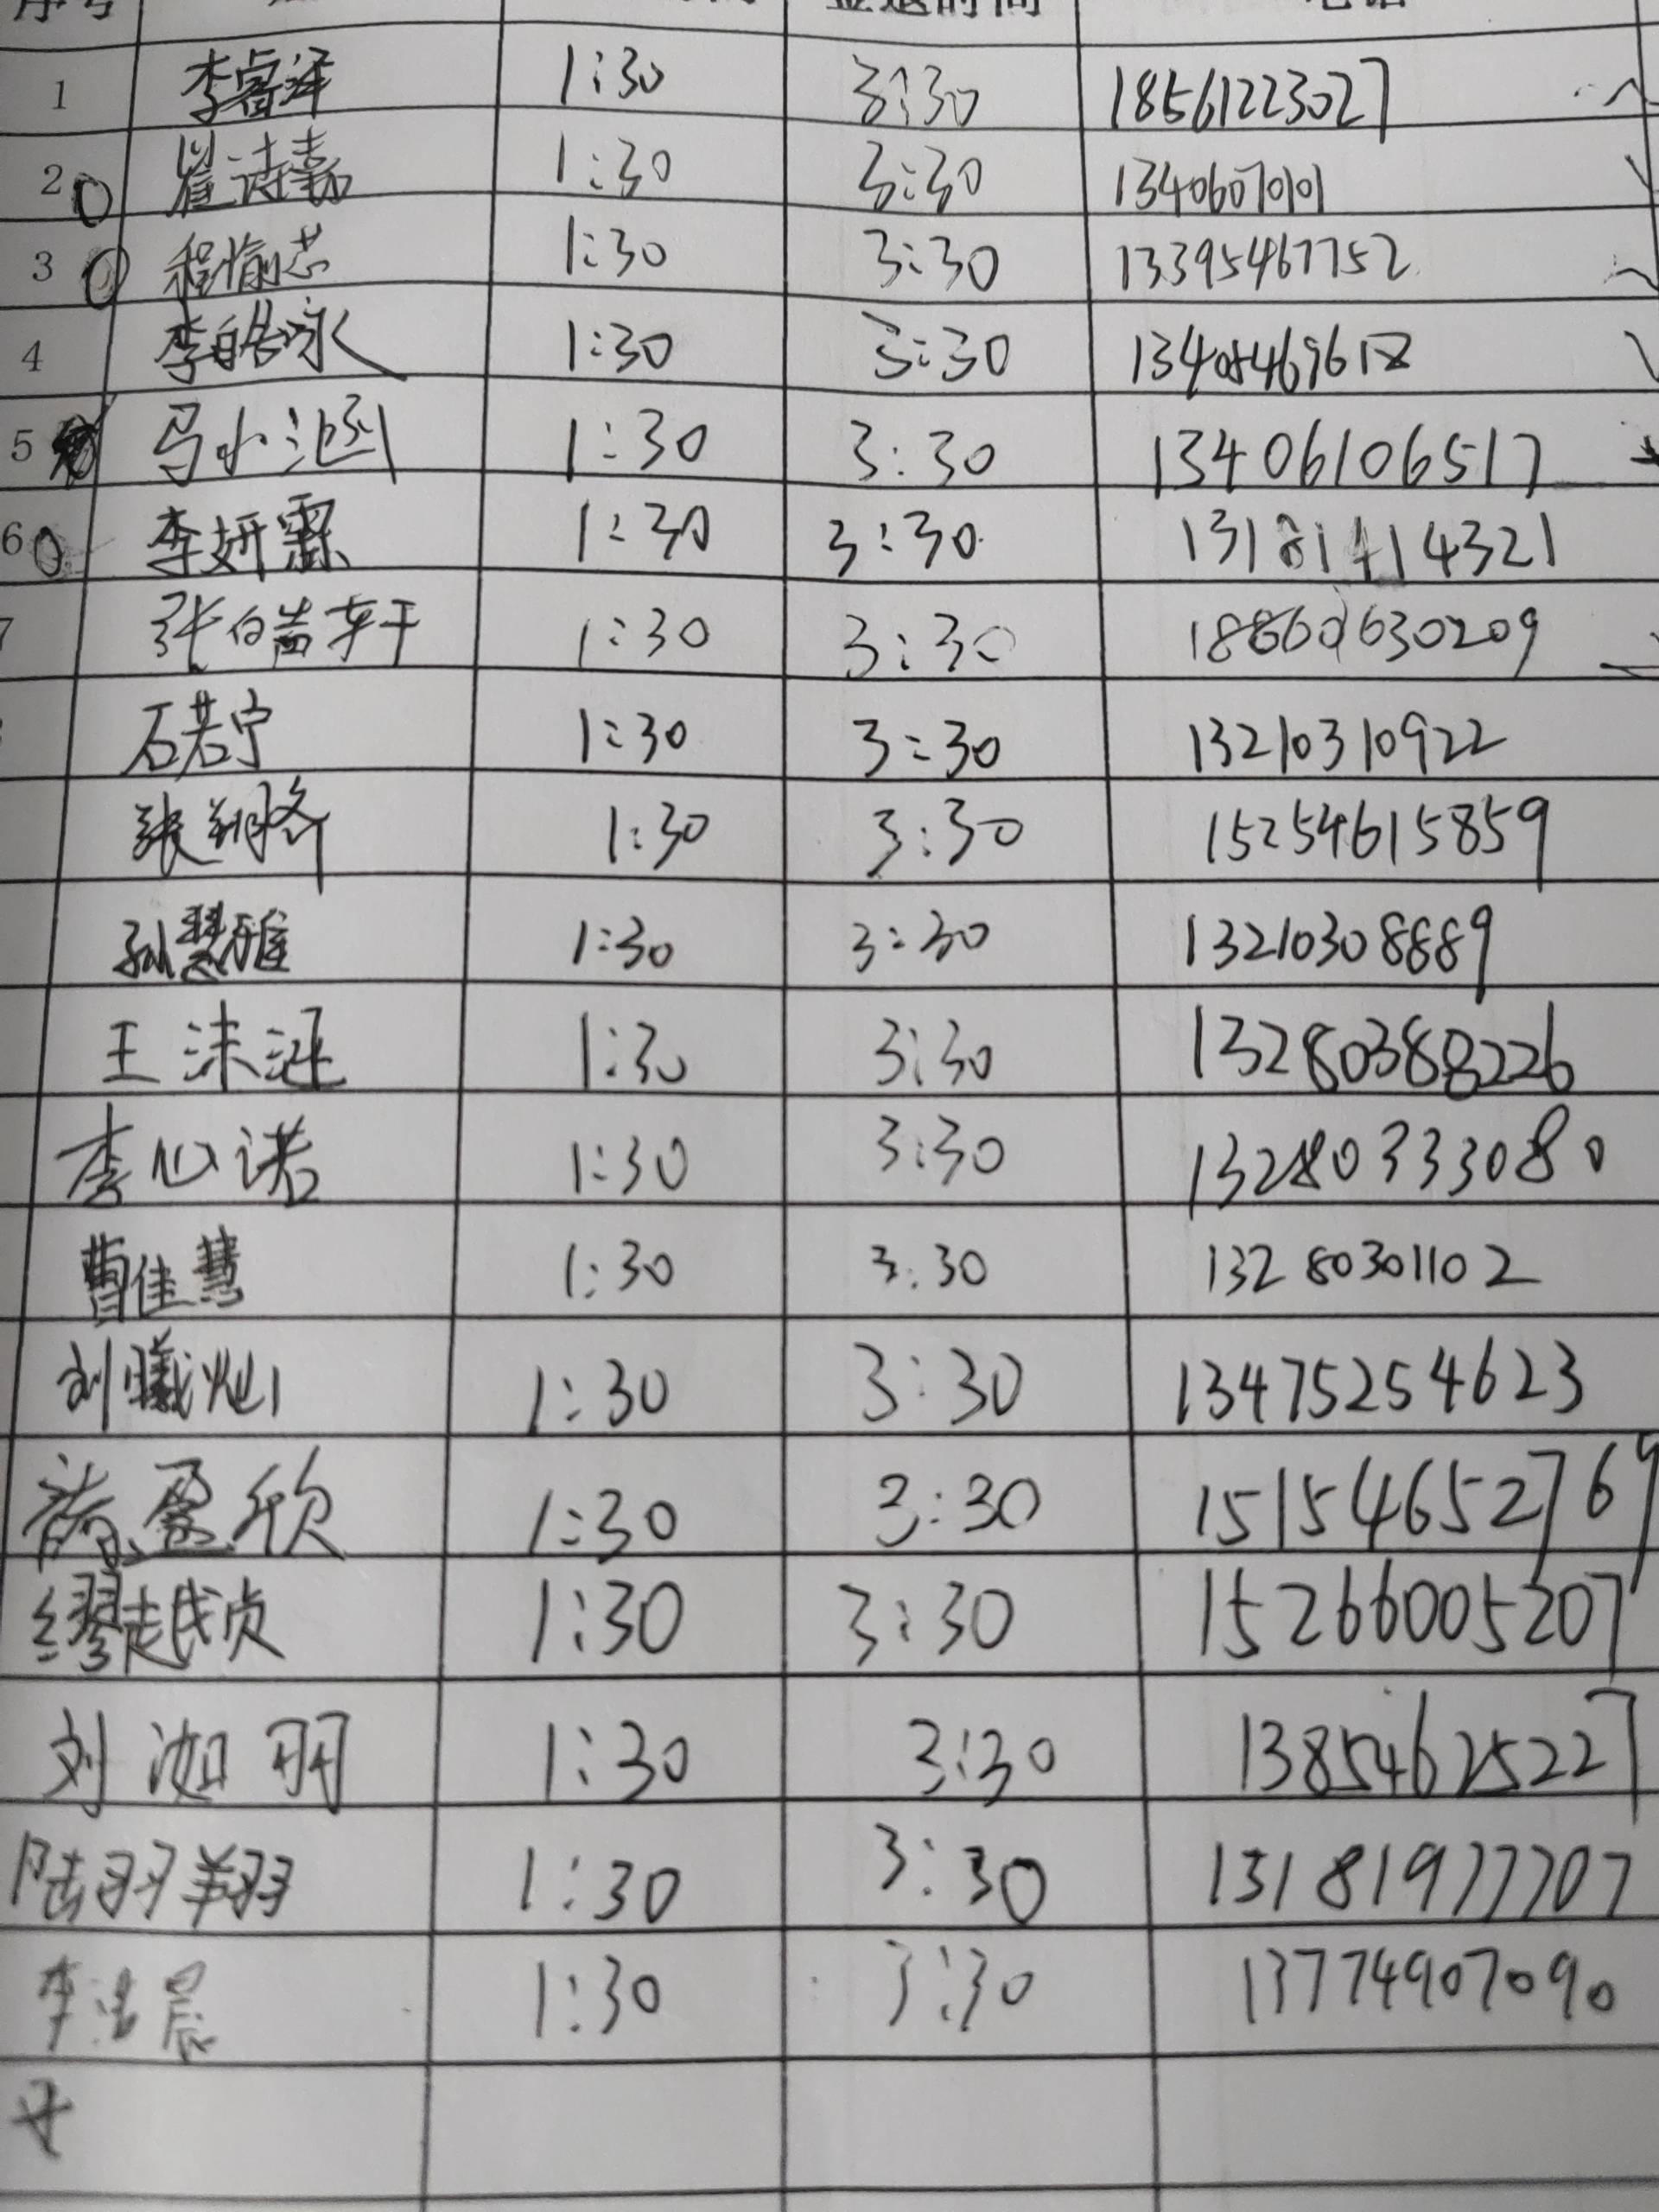 序号 签退时间 电话
1 李睿泽 1:30 3:30 18561223027
2 翟诗嘉 1:30 3:30 13406070101
3 程愉芯 1:30 3:30 13395467752
4 李皓泳 1:30 3:30
5 马小涵 1:30 3:30 13406106517
6 李妍霖 1:30 3:30 13181414321
7 张皓轩 1:30 3:30 18860630209
石若宁 1:30 3:30 13210310922
张翔 1:30 3:30 15254615859
孙慧雅 1:30 3:30 13210308889
王沫涵 1:30 3:30 13280388226
李心诺 1:30 3:30 13280333080
曹佳慧 1:30 3:30 13280301102
刘曦灿 1:30 3:30 13475254623
盈欣 1:30 3:30 15154652769
缪越贞 1:30 3:30 15266005207
刘洳玥 1:30 3:30 13854625227
陆羽翔 1:30 3:30 13181977707
李浩晨 1:30 3:30 13774907090